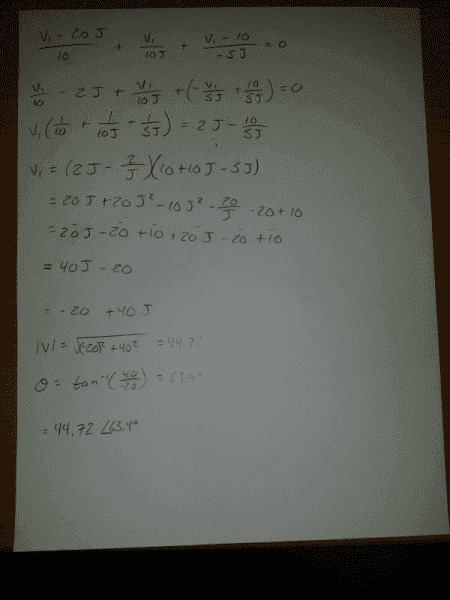 V₁ - 20J / 10 + V₁ / 10J + V₁ - 10 / -5J = 0
V₁/10 - 2J + V₁/10J + (- V₁/5J + 10/5J) = 0
V₁(1/10 + 1/10J - 1/5J) = 2J - 10/5J
V₁ = (2J - 2/J)(10+10J-5J)
= 20J + 20J² - 10J² - 20/J - 20 + 10
= 20J - 20 + 10 + 20J - 20 + 10
= 40J - 20
= -20 + 40J
|V| = √(-20)² + 40² = 44.72
θ = tan⁻¹(40/-20) = 63.4°
= 44.72 ∠63.4°